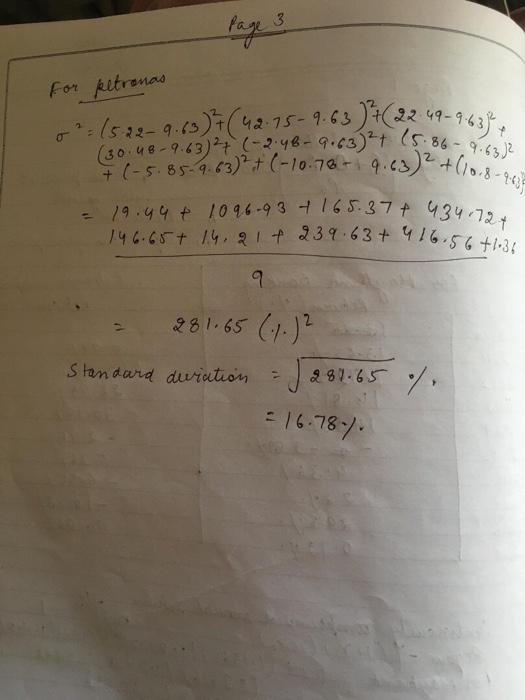 Page 3
For petronas
σ² = (5.22 - 9.63)² + (42.75 - 9.63)² + (22.49 - 9.63)² +
(30.48 - 9.63)² + (-2.48 - 9.63)² + (5.86 - 9.63)²
+ (-5.85 - 9.63)² + (-10.78 - 9.63)² + (10.8 - 9.63)²
= 19.44 + 1096.93 + 165.37 + 434.72 +
146.65 + 14.21 + 239.63 + 416.56 + 1.36
9
= 281.65 (%)²
Standard deviation = √281.65 %
= 16.78%